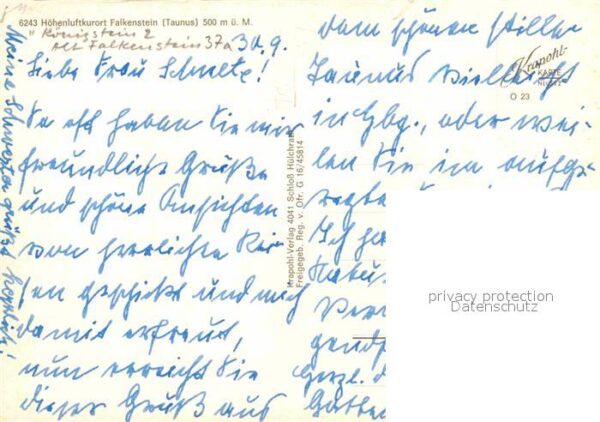 6243 Höhenluftkurort Falkenstein (Taunus) 500 m ü. M.
" Königstein 2
Alt Falkenstein 37a 30. 9.
Liebe Frau Schmelz!
So oft haben Sie mir
freundliche Grüße
und schöne Ansichten
von herrlichen Rei-
sen geschickt und mich
damit erfreut,
nun erreicht Sie
dieser Gruß aus
dem schönen stillen
Taunus vielleicht
in Hbg., oder wei-
len Sie im aufge-
regten
Ich ha
Natu
Ver
gend
Herzl. d
Meine Schwester grüßt herzlich!
Kropohl-Verlag 4041 Schloß Hülchrath
Freigegeb. Reg. v. Ofr. G 16/45814
Kropohl-
KARTE
O 23
privacy protection
Datenschutz